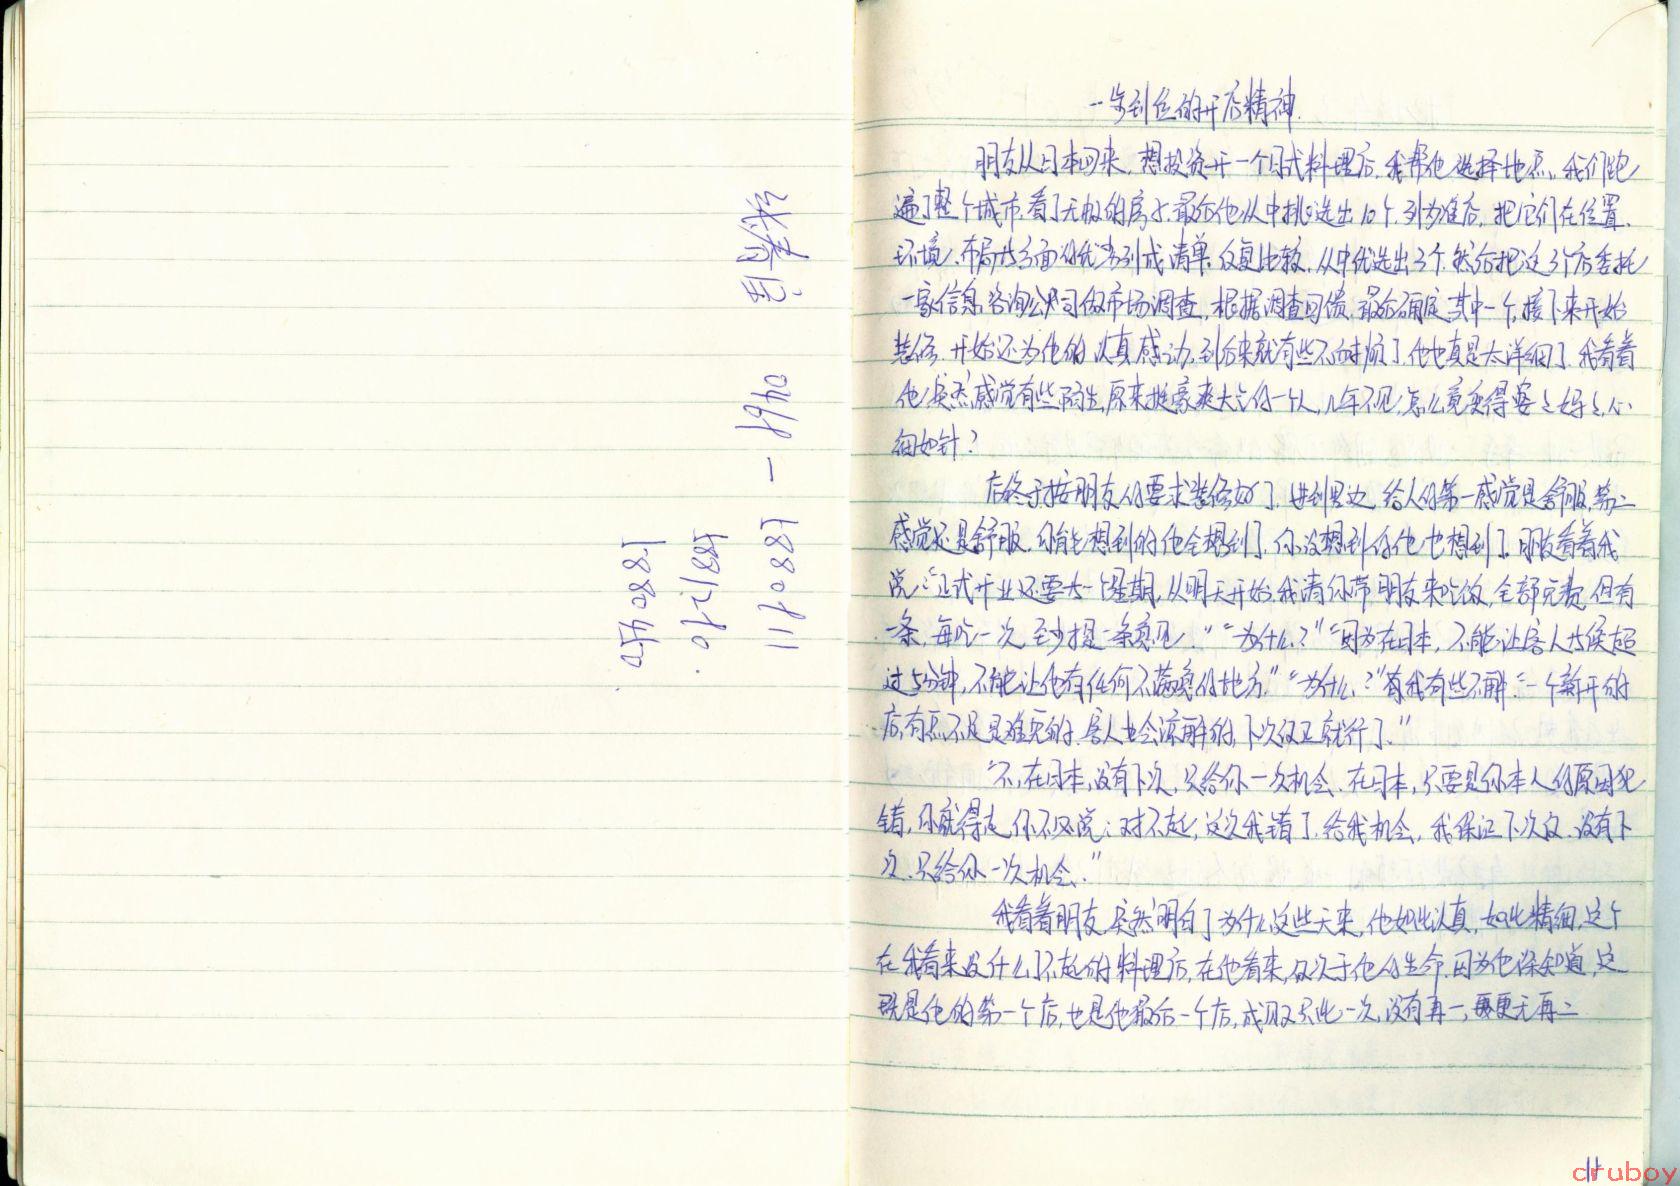 一步到位的开店精神.
朋友从日本回来，想投资开一个日式料理店，我帮他选择地点。我们跑
遍了整个城市，看了无数的房子，最后他从中挑选出10个，列为准店，把它们在位置、
环境、布局等方面的优劣列成清单，反复比较，从中优选出3个，然后把这3个店委托
一家信息咨询公司做市场调查，根据调查回馈，最后确定其中一个，接下来开始
装修。开始还为他的认真感动，到后来就有些不耐烦了，他也真是太详细了，我看着
他突然感觉有些陌生，原来挺豪爽大气的一个人，几年不见，怎么竟变得婆婆妈妈，心
细如针？
店终于按朋友的要求装修好了，进到里边，给人的第一感觉是舒服，第二
感觉还是舒服，你能想到的他全想到了，你没想到的他也想到了。朋友看着我
说：“正式开业还要等一个星期，从明天开始，我请你带朋友来吃饭，全部免费，但有
一条，每吃一次，至少提一条意见。”“为什么？”“因为在日本，不能让客人等候超
过5分钟，不能让他有任何不满意的地方。”“为什么？”我有些不解。“一个新开的
店，有点不足是难免的，客人也会谅解的，下次改正就行了。”
“不，在日本，没有下次，只给你一次机会。在日本，只要是你本人的原因犯
错，你就得走，你不必说：对不起，这次我错了，给我机会，我保证下次改。没有下
次，只给你一次机会。”
我看着朋友，突然明白了为什么这些天来，他如此认真，如此精细，这个
在我看来没什么了不起的料理店，在他看来，仅次于他的生命。因为他深知道，这
既是他的第一个店，也是他最后一个店，成败只此一次，没有再一，更无再二
11
cruboy